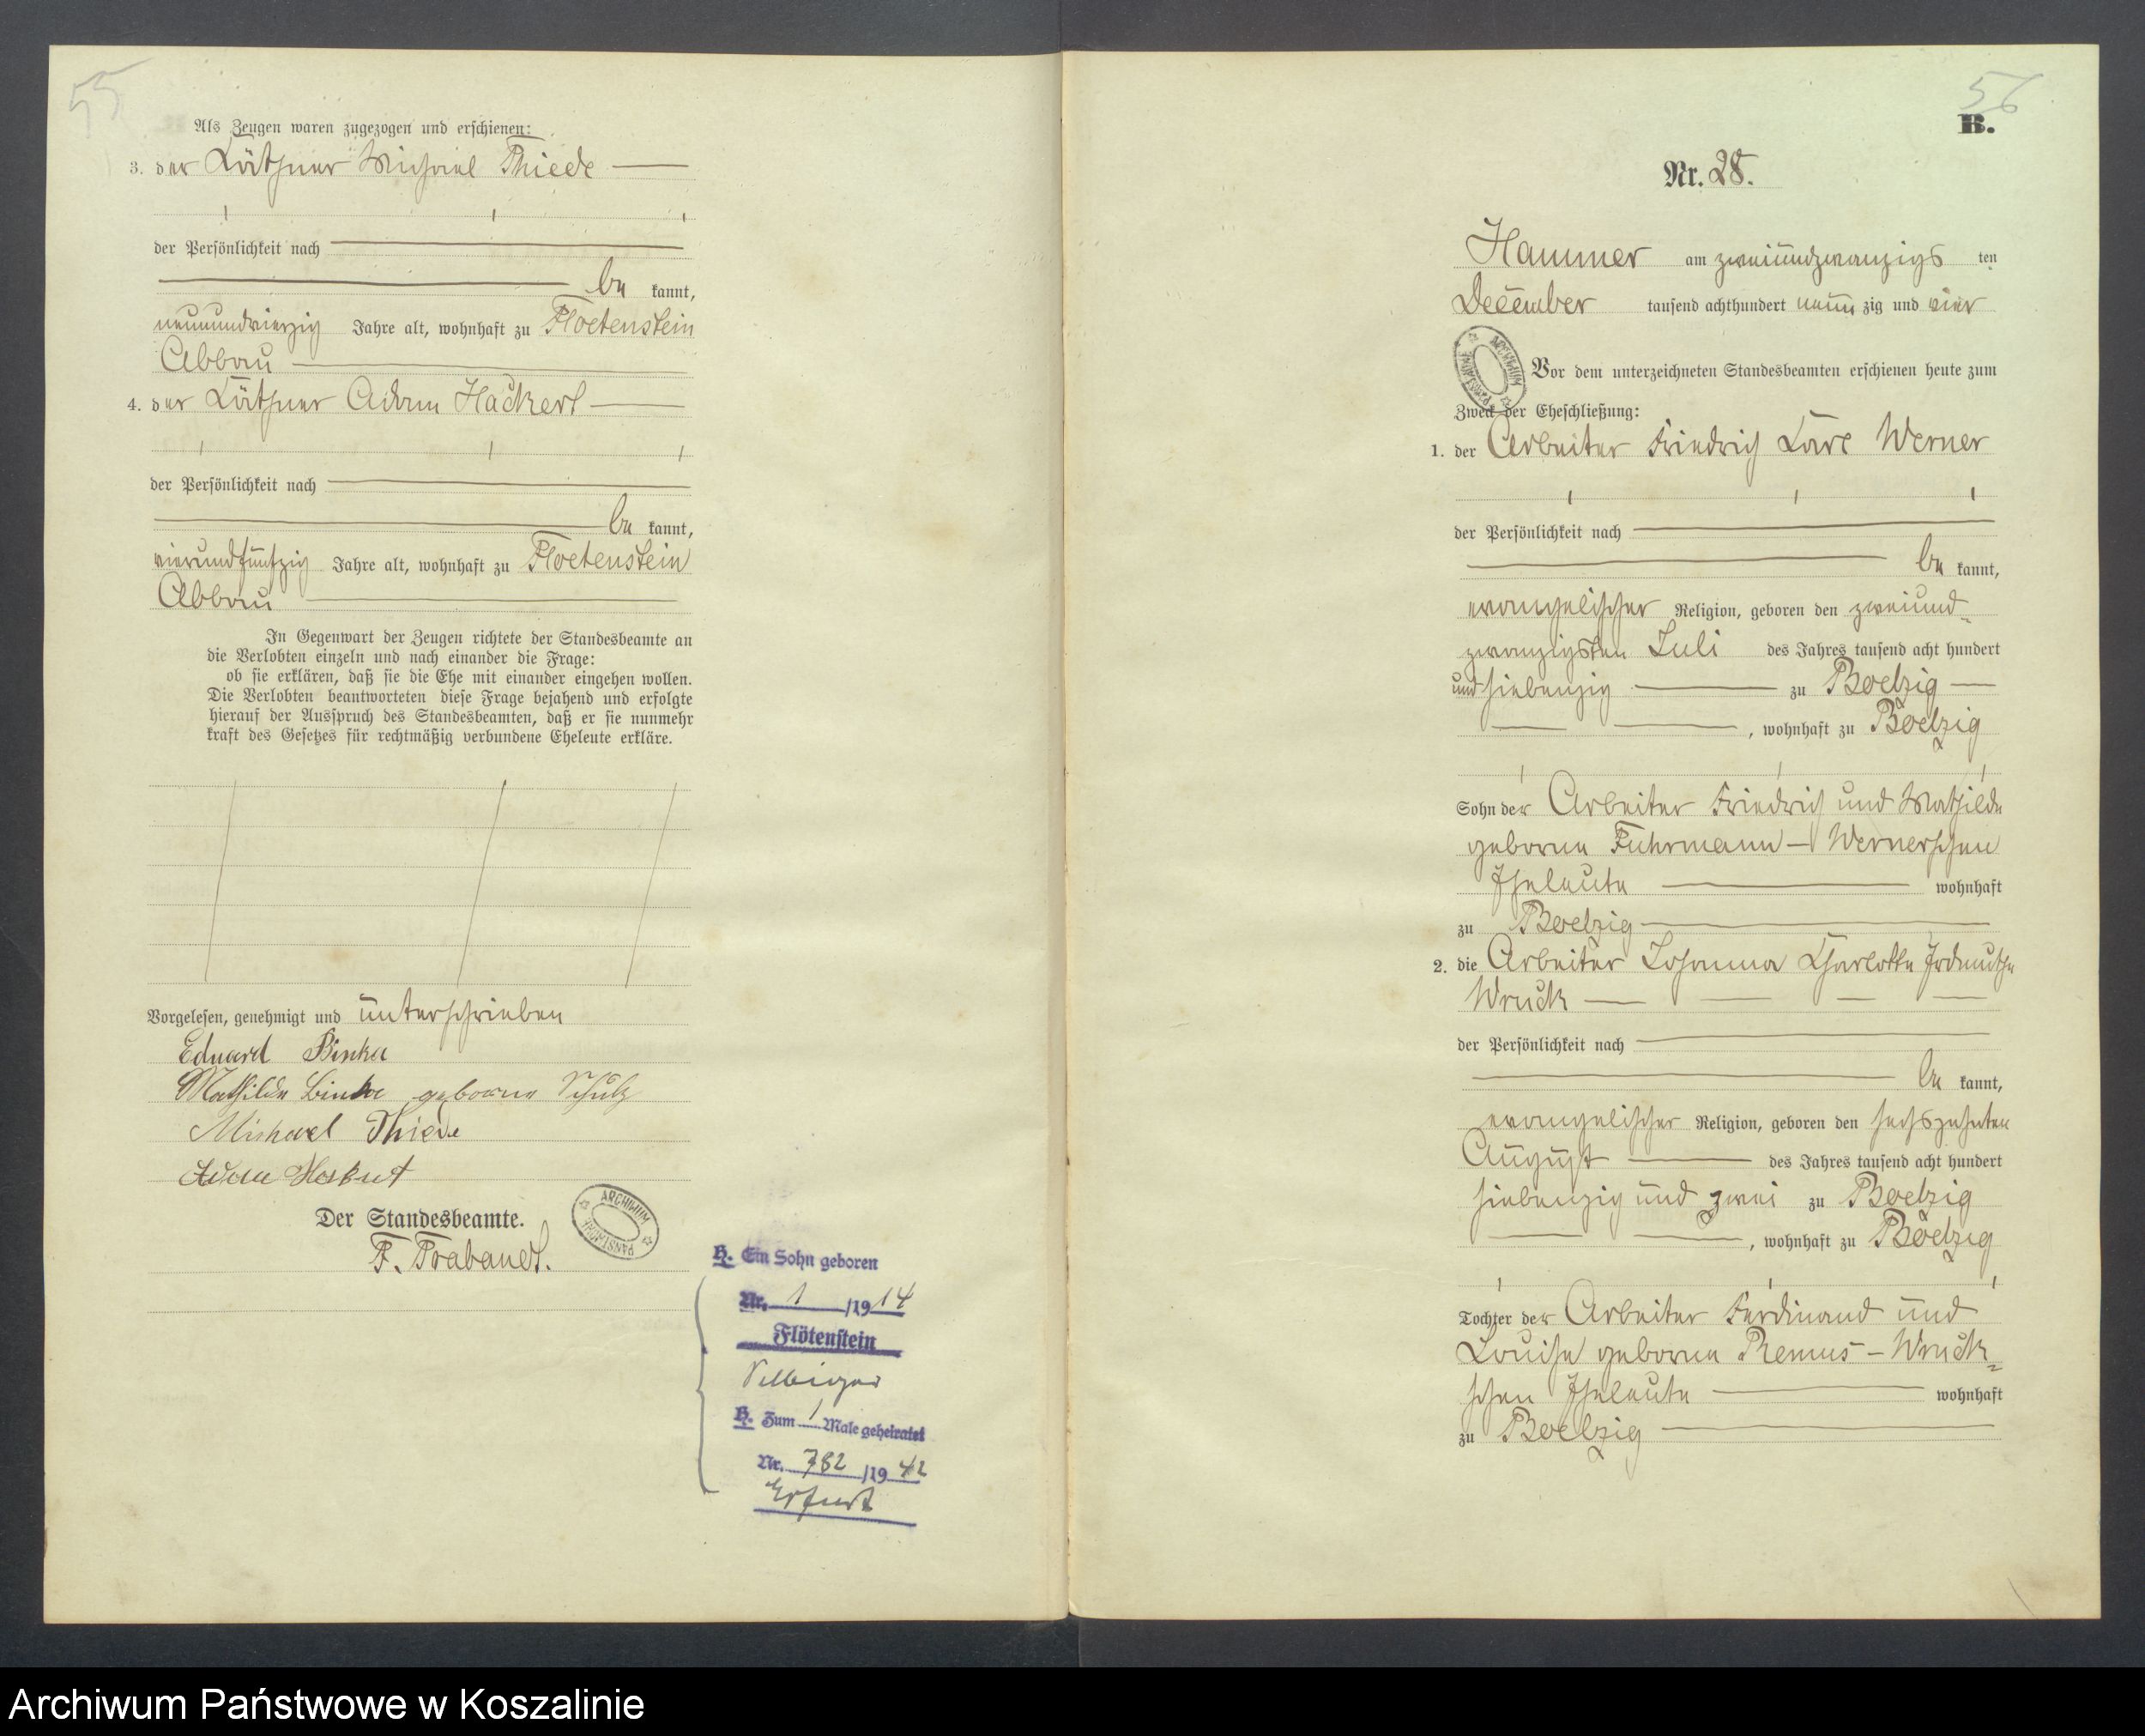 55
Als Zeugen waren zugezogen und erschienen:
3. der Käthner Michael Thiede
der Persönlichkeit nach
be kannt,
neunundvierzig Jahre alt, wohnhaft zu Floetenstein
Abbau
4. der Käthner Adam Hackert
der Persönlichkeit nach
be kannt,
vierundfünfzig Jahre alt, wohnhaft zu Floetenstein
Abbau
In Gegenwart der Zeugen richtete der Standesbeamte an
die Verlobten einzeln und nach einander die Frage:
ob sie erklären, daß sie die Ehe mit einander eingehen wollen.
Die Verlobten beantworteten diese Frage bejahend und erfolgte
hierauf der Ausspruch des Standesbeamten, daß er sie nunmehr
kraft des Gesetzes für rechtmäßig verbundene Eheleute erkläre.
Vorgelesen, genehmigt und unterschrieben
Eduard Binke
Mathilde Binke geborne Schulz
Michael Thiede
Adam Hackert
Der Standesbeamte.
F. Brabandt.
ARCHIWUM PAŃSTWOWE
H. Ein Sohn geboren
Nr. 1 /1914
Flötenstein
H. Zum 1 Male geheiratet
Nr. 782 /1942
Erfurt
56
B.
Nr. 28.
Hammer am zweiundzwanzigs ten
December tausend achthundert neun zig und vier
ARCHIWUM PAŃSTWOWE
Vor dem unterzeichneten Standesbeamten erschienen heute zum
Zweck der Eheschließung:
1. der Arbeiter Friedrich Karl Werner
der Persönlichkeit nach
be kannt,
evangelischer Religion, geboren den zweiund-
zwanzigsten Juli des Jahres tausend acht hundert
und siebenzig zu Boelzig
, wohnhaft zu Boelzig
Sohn der Arbeiter Friedrich und Mathilde
geborne Fuhrmann - Wernerschen
Eheleute wohnhaft
zu Boelzig
2. die Arbeiter Johanna Charlotte Erdmuthe
Wruck
der Persönlichkeit nach
be kannt,
evangelischer Religion, geboren den sechszehnten
August des Jahres tausend acht hundert
siebenzig und zwei zu Boelzig
, wohnhaft zu Boelzig
Tochter der Arbeiter Ferdinand und
Louise geborne Remus - Wruck=
schen Eheleute wohnhaft
zu Boelzig
Archiwum Państwowe w Koszalinie